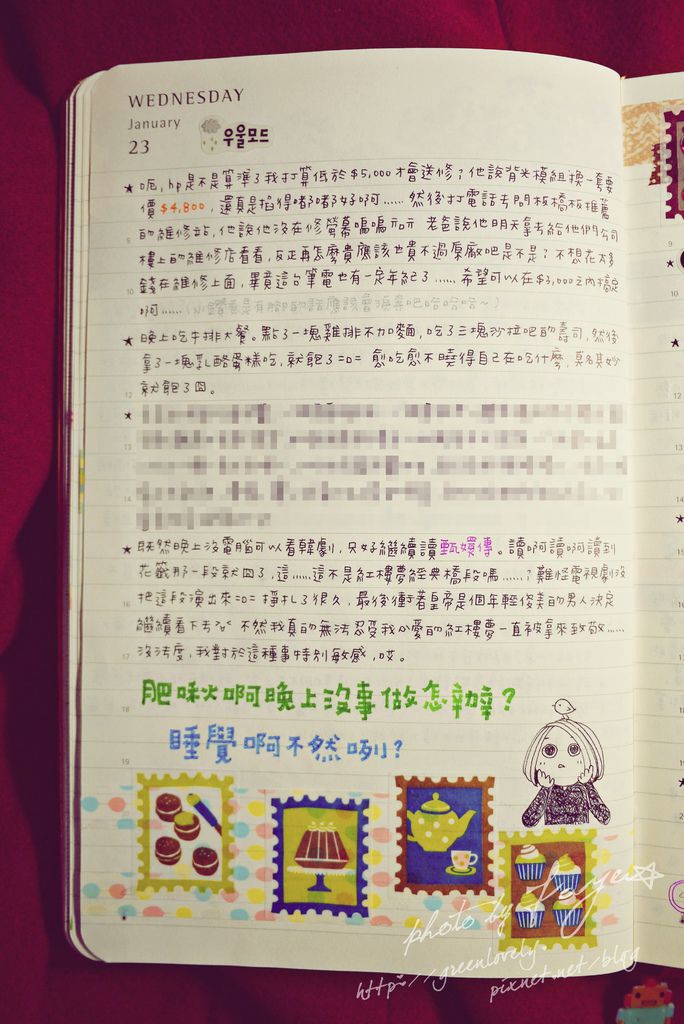 WEDNESDAY
January
23
우울모드
★ 呃，hp是不是算準了我打算低於$5,000才會送修？他說背光模組換一套要
價$4,800，還真是掐得嘟嘟好啊……然後打電話去問板橋板推薦
的維修站，他說他沒在修螢幕嗚嗚 老爸說他明天拿去給他們公司
樓上的維修店看看，反正再怎麼貴應該也貴不過原廠吧是不是？不想花太多
錢在維修上面，畢竟這台筆電也有一定年紀了……希望可以在$3,000之內搞定
啊……（小鐵盒是有腳的話應該會踹奔吧哈哈哈～）
★ 晚上吃牛排大餐。點了一塊雞排不加麵，吃了三塊沙拉吧的壽司，然後
拿了一塊乳酪蛋糕吃，就飽了=口= 愈吃愈不曉得自己在吃什麼，莫名其妙
就飽了囧。
★
★ 既然晚上沒電腦可以看韓劇，只好繼續讀甄嬛傳。讀啊讀啊讀到
花籤那一段就囧了，這……這不是紅樓夢經典橋段嗎……？難怪電視劇沒
把這段演出來=口= 掙扎了很久，最後衝著皇帝是個年輕俊美的男人決定
繼續看下去 不然我真的無法忍受我心愛的紅樓夢一直被拿來致敬……
沒法度，我對於這種事特別敏感，哎。
肥啾啊晚上沒事做怎辦？
睡覺啊不然咧？
photo by Faye☆
http://greenlovely.
pixnet.net/blog